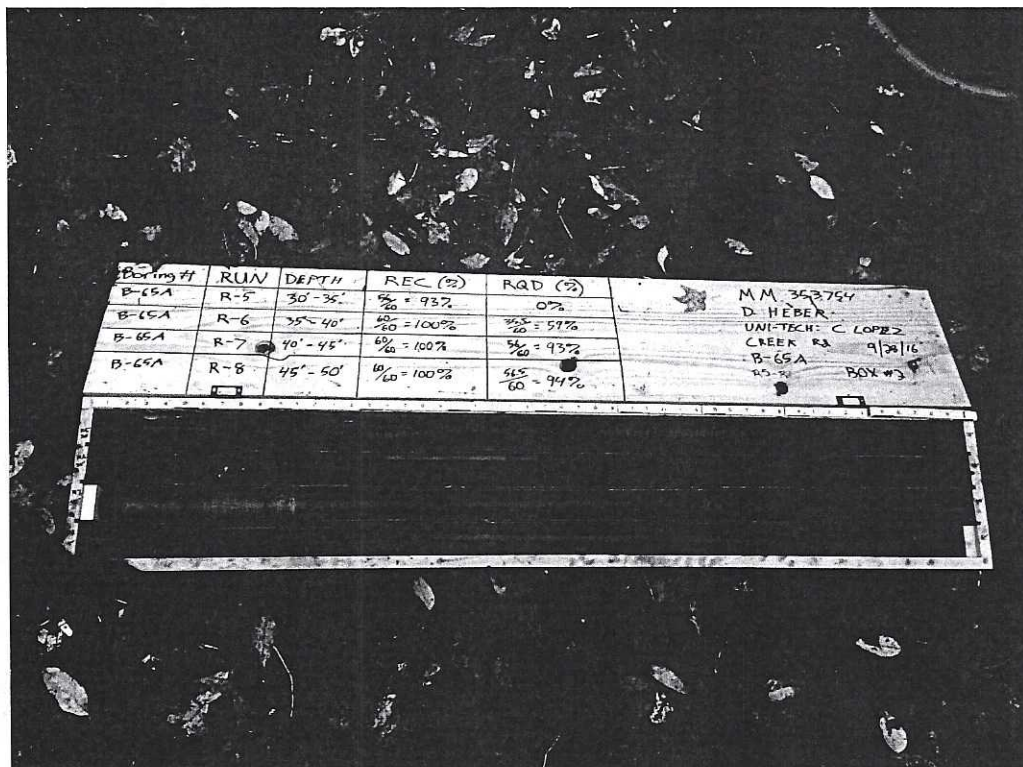 Boring # RUN DEPTH REC (%) RQD (%)
B-65A R-5 30'-35' 56/60 = 93% 0%
B-65A R-6 35'-40' 60/60 = 100% 35.5/60 = 59%
B-65A R-7 40'-45' 60/60 = 100% 56/60 = 93%
B-65A R-8 45'-50' 60/60 = 100% 56.5/60 = 94%
M.M. 353.754
D. HEBER
UNI-TECH: C LOPEZ
CREEK Rd 9/28/16
B-65A
BOX #3